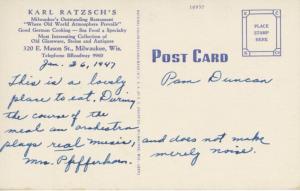 KARL RATZSCH'S
Milwaukee's Outstanding Restaurant
"Where Old World Atmosphere Prevails"
Good German Cooking — Sea Food a Specialty
Most Interesting Collection of
Old Glassware, Steins and Antiques
320 E. Mason St., Milwaukee, Wis.
Telephone BRoadway
Jan. 26, 1947
This is a lovely
place to eat. During
the course of the
meal an orchestra
plays real music, and does not make
merely noise.
Mrs. Pfefferkorn.
POST CARD
Pam Duncan
PLACE
STAMP
HERE